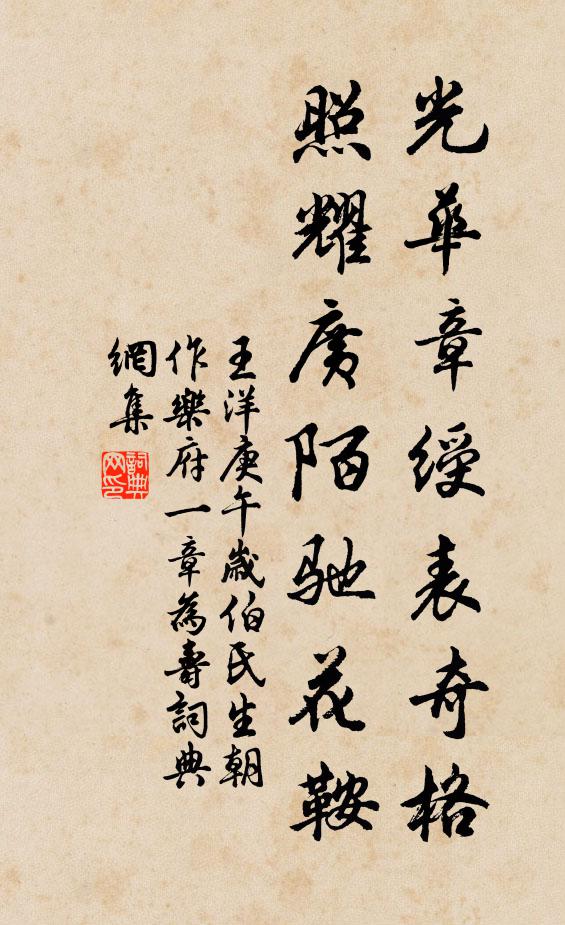 光華章綬表奇格
照耀廣陌馳花鞍
王洋庚午歲伯氏生朝
作樂府一章為壽詞典
網集
詞典
网印